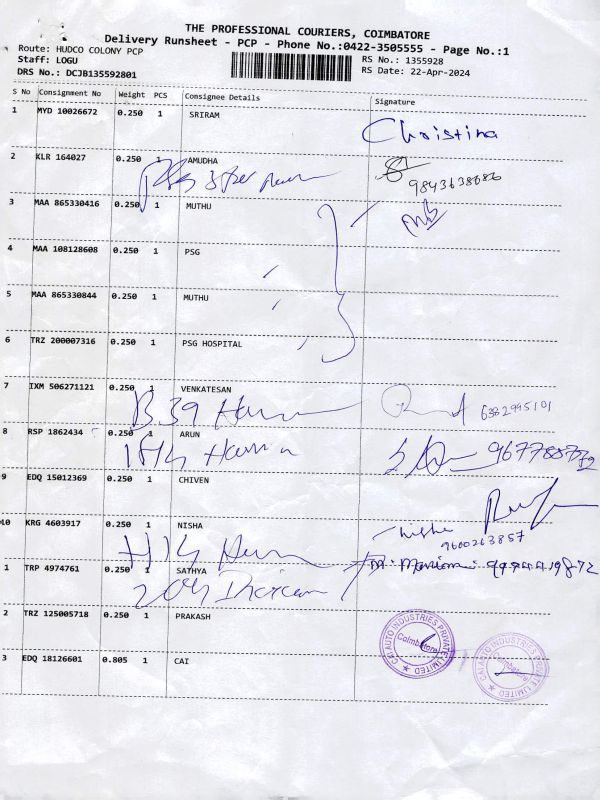 THE PROFESSIONAL COURIERS, COIMBATORE
Delivery Runsheet - PCP - Phone No.:0422-3505555 - Page No.:1
Route: HUDCO COLONY PCP
Staff: LOGU
DRS No.: DCJB135592801
RS No.: 1355928
RS Date: 22-Apr-2024
S No Consignment No Weight PCS Consignee Details Signature
1 MYD 10026672 0.250 1 SRIRAM Christina
2 KLR 164027 0.250 1 AMUDHA
9843638686
3 MAA 865330416 0.250 1 MUTHU
4 MAA 108128608 0.250 1 PSG
5 MAA 865330844 0.250 1 MUTHU
6 TRZ 200007316 0.250 1 PSG HOSPITAL
7 IXM 506271121 0.250 1 VENKATESAN
B39 6382995101
8 RSP 1862434 0.250 1 ARUN
9 EDQ 15012369 0.250 1 CHIVEN
10 KRG 4603917 0.250 1 NISHA Nisha
9600263857
1 TRP 4974761 0.250 1 SATHYA
2 TRZ 125005718 0.250 1 PRAKASH
3 EDQ 18126601 0.805 1 CAI
CAI AUTO INDUSTRIES PRIVATE LIMITED
Coimbatore
CAI AUTO INDUSTRIES PRIVATE LIMITED
Coimbatore